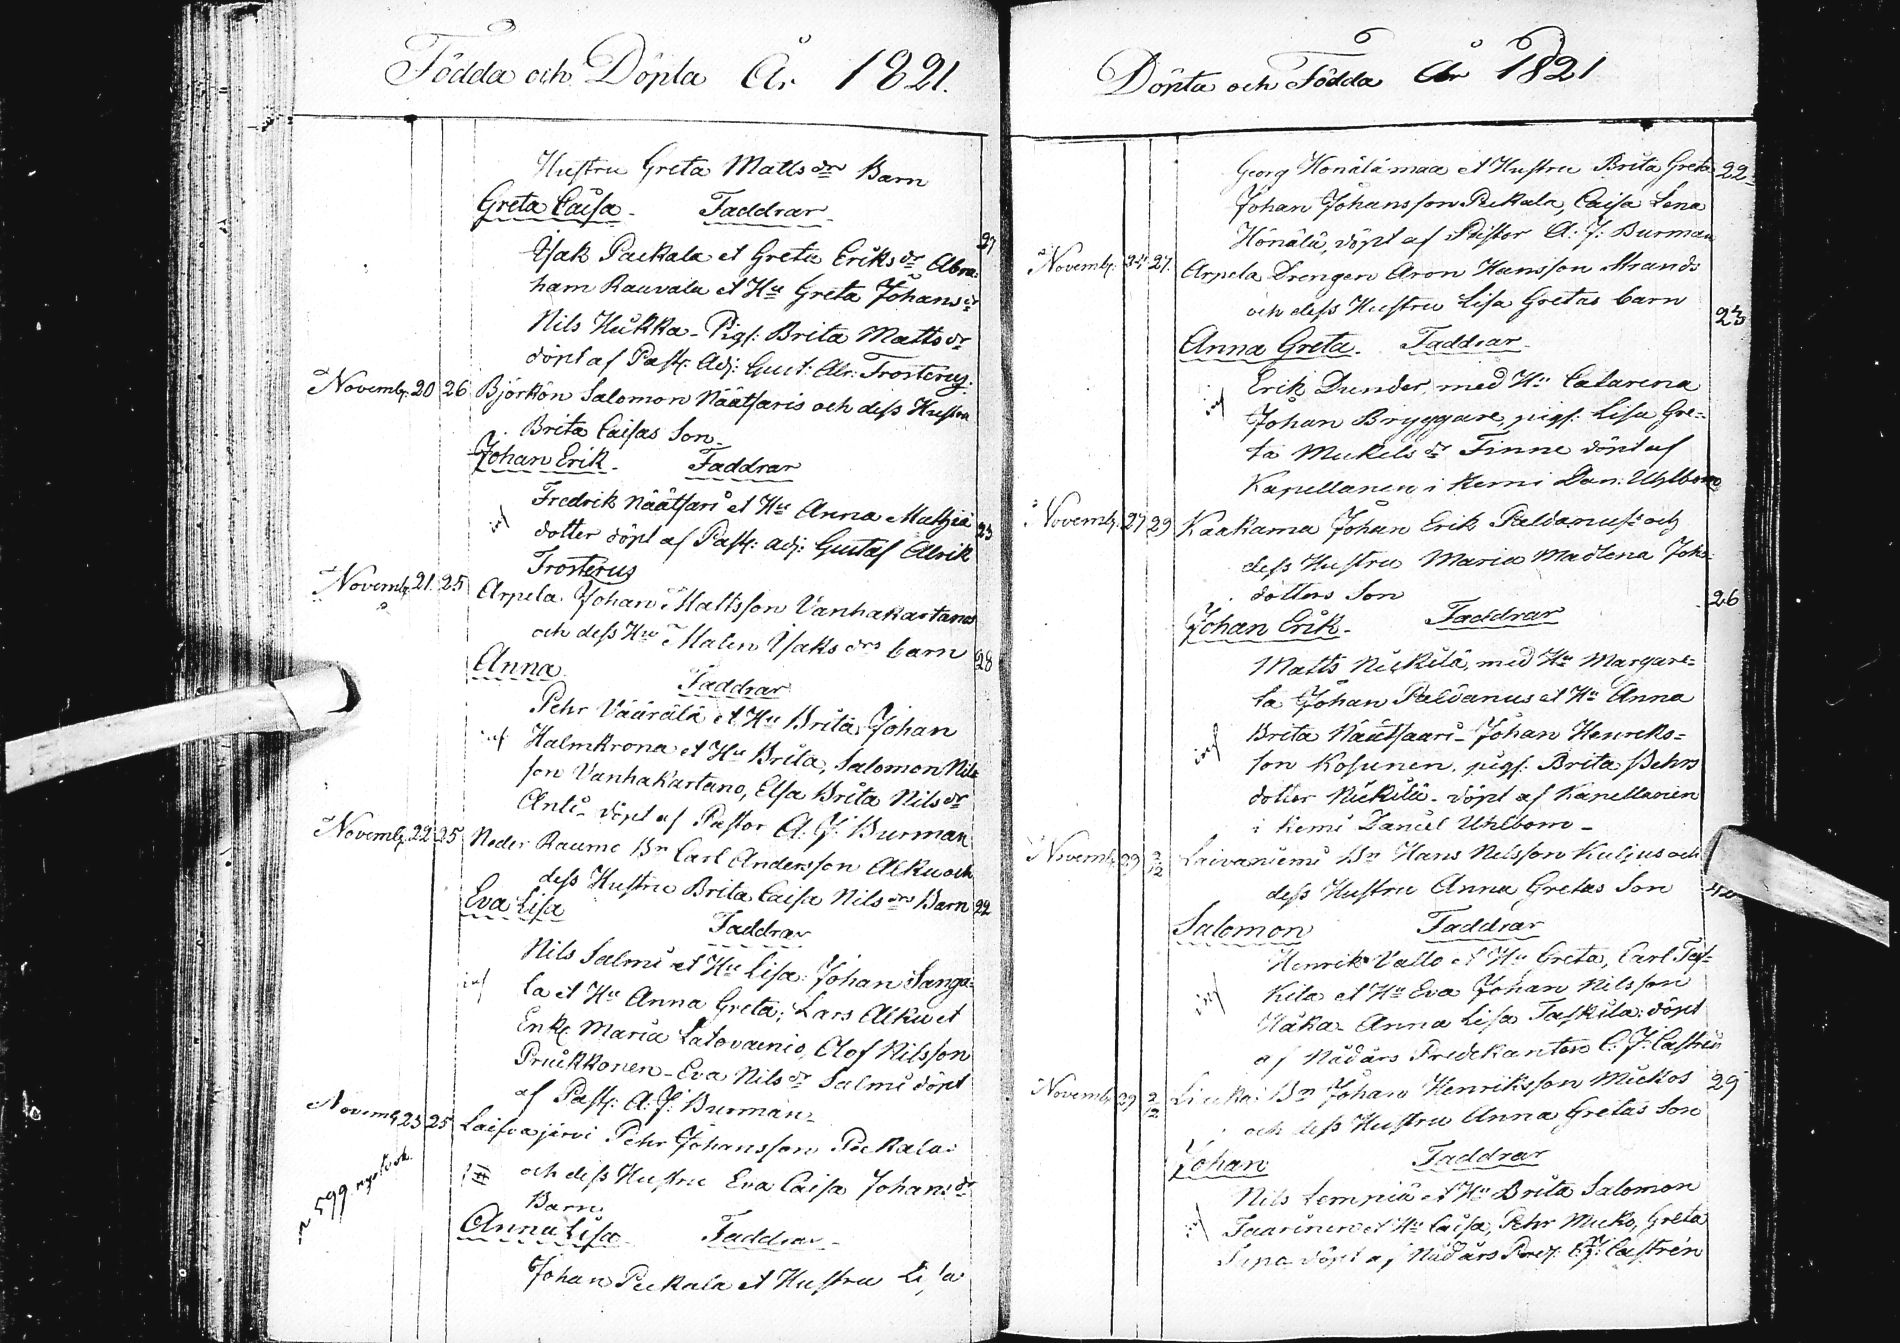 Födda och Döpta År 1821.
Hustru Greta Matts dr Barn
Greta Caisa. Faddrar
Isak Paekala et Greta Eriks dr Abra 27
ham Rauvala et Hu Greta Johans dr
Nils Hukka - Pigs: Brita Matts dr
döpt af Past: Adj: Gust: Alr: Frosterus.
Novemb. 20 26 Björkön Salomon Näätsaris och dess Hustru
Brita Caisas Son.
Johan Erik. Faddrar
Fredrik Näätsari et Hu Anna Mathiä
inf dotter döpt af Past: adj: Gustaf Alrik 23
Frosterus
Novemb. 21 25 Arpela Johan Mattsson Vanhakartanos
och dess Hu Malin Isaks drs barn 28
Anna Faddrar
Pehr Väärälä et Hu Brita, Johan
inf Halmkrona et Hu Brita, Salomon Nils
son Vanhakartano, Elsa Brita Nils dr
Anti - döpt af Pastor A. J. Burman
Novemb. 22 25 Neder Raumo Bn Carl Andersson Alku och
dess Hustru Brita Caisa Nils drs Barn 22
Eva Lisa Faddrar
Nils Salmi et Hu Lisa: Johan Sanga-
inf la et Hu Anna Greta; Lars Alku et
Enk: Maria Latovainio, Olof Nilsson
Pruikkonen - Eva Nils dr Salmi döpt
af Past: A: J: Burman
Novemb. 23 25 Laivajärvi Pehr Johansson Peekalas
och dess Hustru Eva Caisa Johans dr
Barn
n 599
Anna Lisa Faddrar
Johan Peekala et Hustru Lisa
Döpta och Födda År 1821
Georg Honälämaa et Hustru Brita Greta 22
Johan Johansson Peekala, Caisa Lena
Hönälä, döpt af Pastor A: J: Burman
Novemb. 24 27 Arpela Drengen Aron Hansson Strands
och dess Hustru Lisa Gretas barn 23
Anna Greta. Faddrar
Erik Dunder, med Hu Catarina
inf Johan Bryggare, pigs: Lisa Gre-
ta Mickels dr Finne döpt af
Kapellanen i Kemi Dan: Uhlbom
Novemb. 27 29 Kaakama Johan Erik Paldanus och
dess Hustru Maria Madlena Joh-
dotters Son 26
Johan Erik. Faddrar
Matts Nickilä, med Hu Margare-
ta Johan Paldanus et Hu Anna
inf Brita Näätsaari - Johan Henriks-
son Kosunen. pigs. Brita Pehrs
dotter Nickilä - döpt af Kapellanen
i Kemi Daniel Uhlbom -
Novemb. 29 2/12 Laivaniemi Bn Hans Nilsson Kuljus och
dess Hustru Anna Gretas Son 40
Salomon Faddrar
Henrik Vallo et Hu Greta, Carl Tas-
inf kila et Hu Eva Johan Nilsson
Anna Lisa Taskila: döpt
af Nådårs Predikanten C. J. Castrén
Novemb. 29 2/12 Bn Johan Henriksson Mickos 29
och dess Hustru Anna Gretas Son
Johan Faddrar
Nils Lempiä et Hu Brita Salomon
inf Taarinen et Hu Caisa, Pehr Micko, Greta
döpt af Nådårs Pred. C. J. Castrén